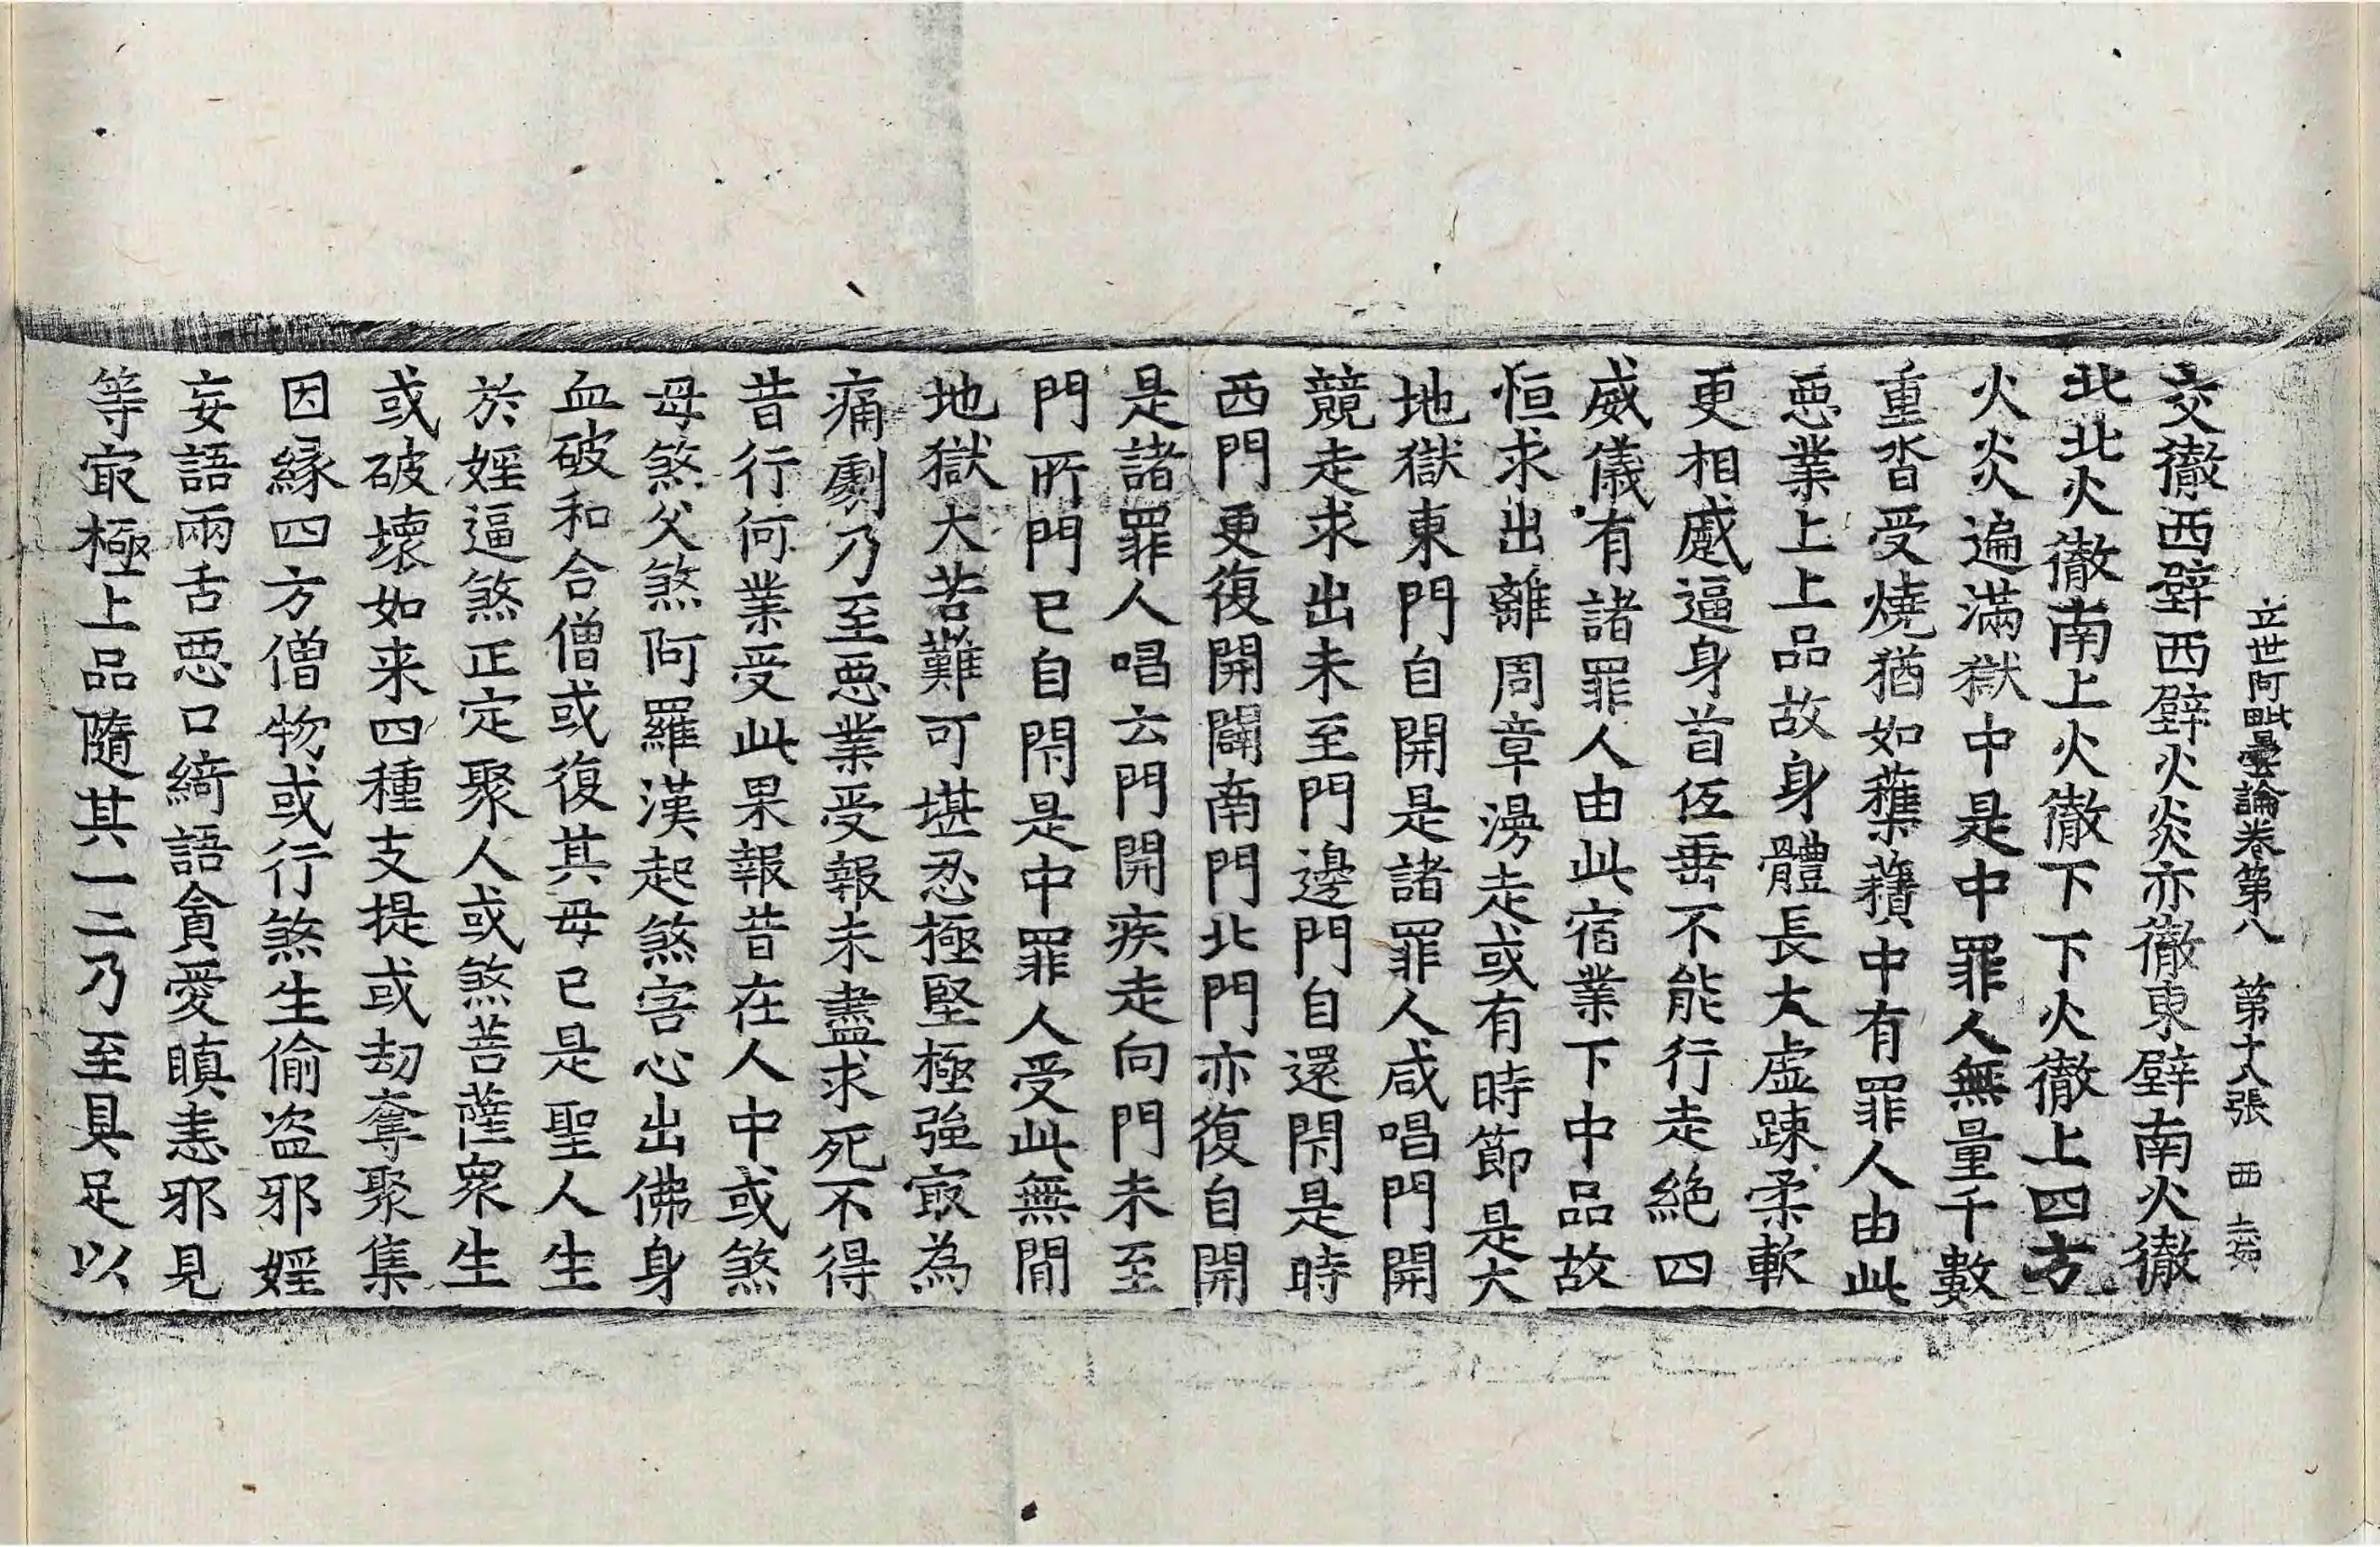 立世阿毗曇論卷第八 第十八張 西
交徹西壁西壁火炎亦徹東壁南火徹
北北火徹南上火徹下下火徹上四方
火炎遍滿獄中是中罪人無量千數
重沓受燒猶如蘓𧂐中有罪人由此
悪業上上品故身體長大虛踈柔軟
更相蹙逼身首伍垂不能行走絶四
威儀有諸罪人由此宿業下中品故
恒求出離周章滂走或有時節是大
地獄東門自開是諸罪人咸唱門開
競走求出未至門邊門自還閇是時
西門更復開闢南門北門亦復自開
是諸罪人唱云門開疾走向門未至
門所門已自閇是中罪人受此無閒
地獄大苦難可堪忍極堅極強㝡為
痛劇乃至悪業受報未盡求死不得
昔行何業受此果報昔在人中或煞
母煞父煞阿羅漢起煞害心出佛身
血破和合僧或復其母已是聖人生
於婬逼煞正定聚人或煞菩薩衆生
或破壞如来四種支提或劫奪聚集
因緣四方僧物或行煞生偷盗邪婬
妄語兩舌悪口綺語貪愛瞋恚邪見
等㝡極上品隨其一二乃至具足以